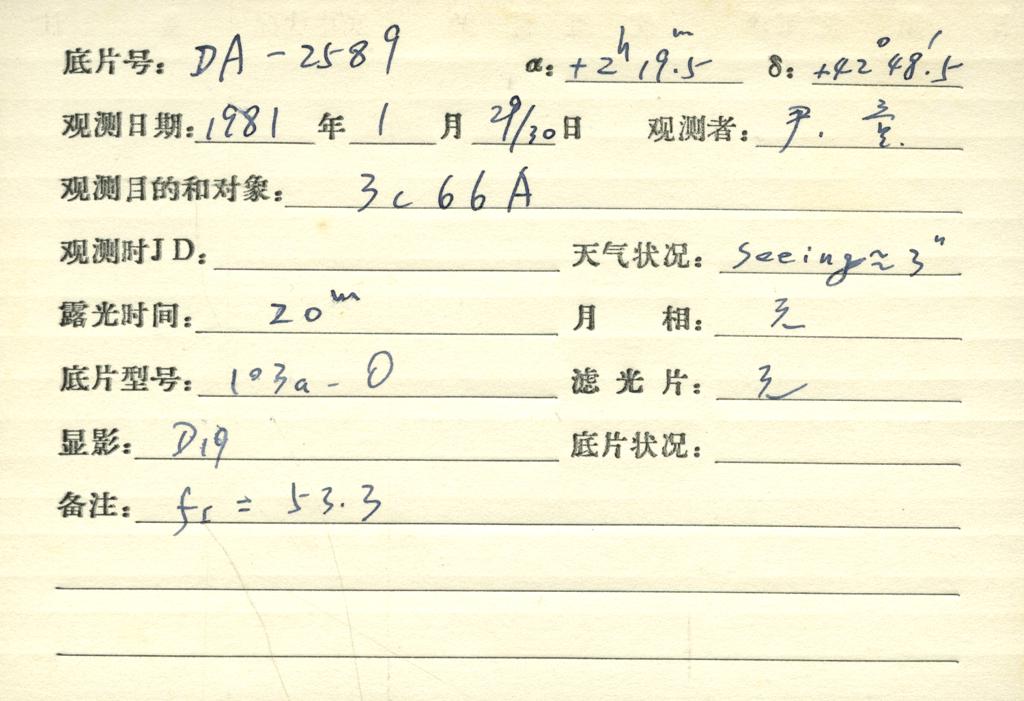 底片号: DA-2589 α: +2ʰ19.ᵐ5 δ: +42°48.′5
观测日期: 1981 年 1 月 29/30 日 观测者: 尹.
观测目的和对象: 3c66A
观测时JD: 天气状况: seeing≈3"
露光时间: 20ᵐ 月 相: 无
底片型号: 103a-O 滤光片: 无
显影: D19 底片状况:
备注: fr = 53.3